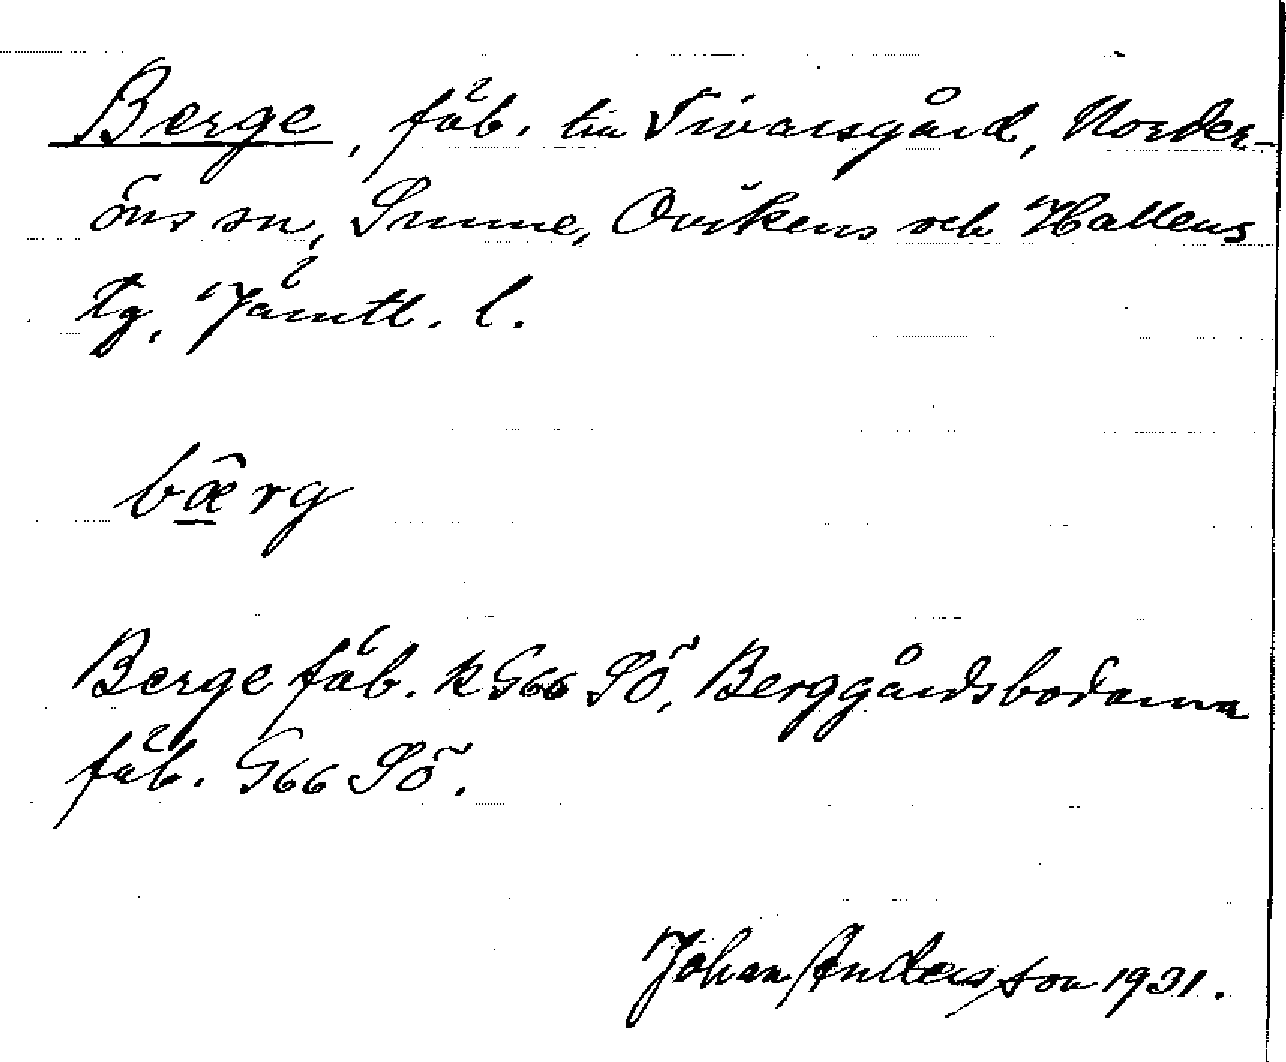 Berge, fäb. till Tivarsgård, Norder-
öns sn, Sunne, Ovikens och Hallens
tg, Jämtl. l.
bæ̂rg
Berge fäb. k G66 SÖ, Berggårdsbodarna
fäb. G66 SÖ.
Johan Andersson 1931.